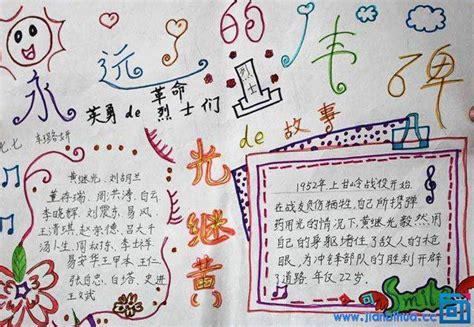 永远的丰碑
英勇de革命烈士们
烈士
de故事
光继黄
黄继光、刘胡兰
董存瑞、周洪涛、白云
李晓辉、刘震东、易风
赵宗德、吕大千
汤小生、周叔东、李士祥
易安华、王甲本、王仁
张自忠、白塔、史进
1952年上甘岭战役开始
在战友负伤牺牲,自己所携弹
药用光的情况下,黄继光毅然用
自己的身躯堵住了敌人的枪
眼,为冲锋部队的胜利开辟
了道路,年仅22岁.
Smile
www.jianbihua.cc